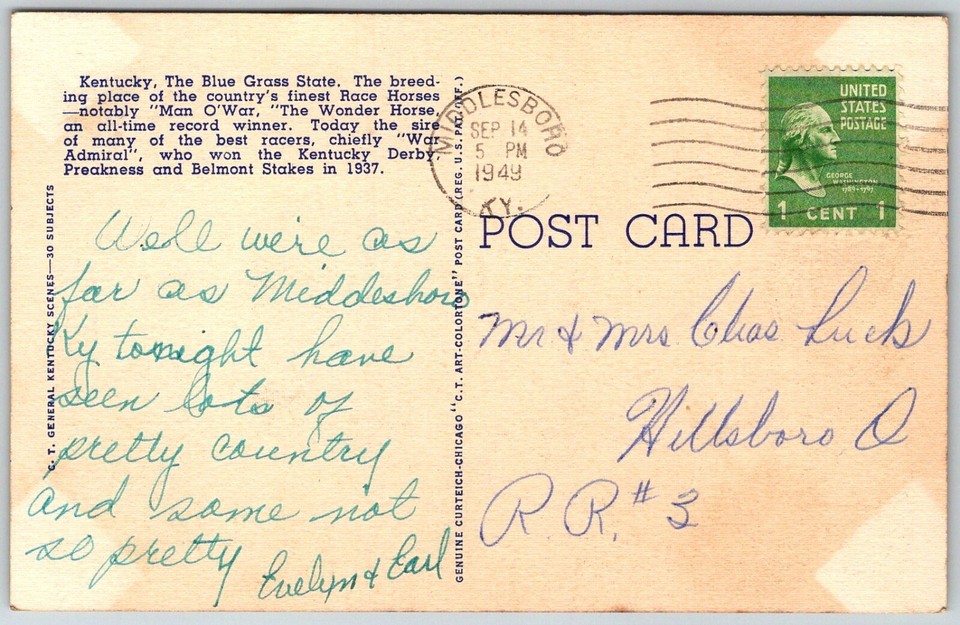 Kentucky, The Blue Grass State. The breed-
ing place of the country's finest Race Horses
—notably "Man O'War, "The Wonder Horse,
an all-time record winner. Today the sire
of many of the best racers, chiefly "War
Admiral", who won the Kentucky Derby-
Preakness and Belmont Stakes in 1937.
C. T. GENERAL KENTUCKY SCENES—30 SUBJECTS
Well we're as
far as Middesboro
Ky tonight have
seen lots of
pretty country
and some not
so pretty
Evelyn & Earl
GENUINE CURTEICH-CHICAGO "C. T. ART-COLORTONE" POST CARD (REG. U. S. PAT. OFF.)
MIDDLESBORO
SEP 14
5 PM
1949
KY.
UNITED
STATES
POSTAGE
GEORGE
WASHINGTON
1789-1797
1 CENT 1
POST CARD
Mr & Mrs Chas Luck
Hillsboro O
R. R. # 3